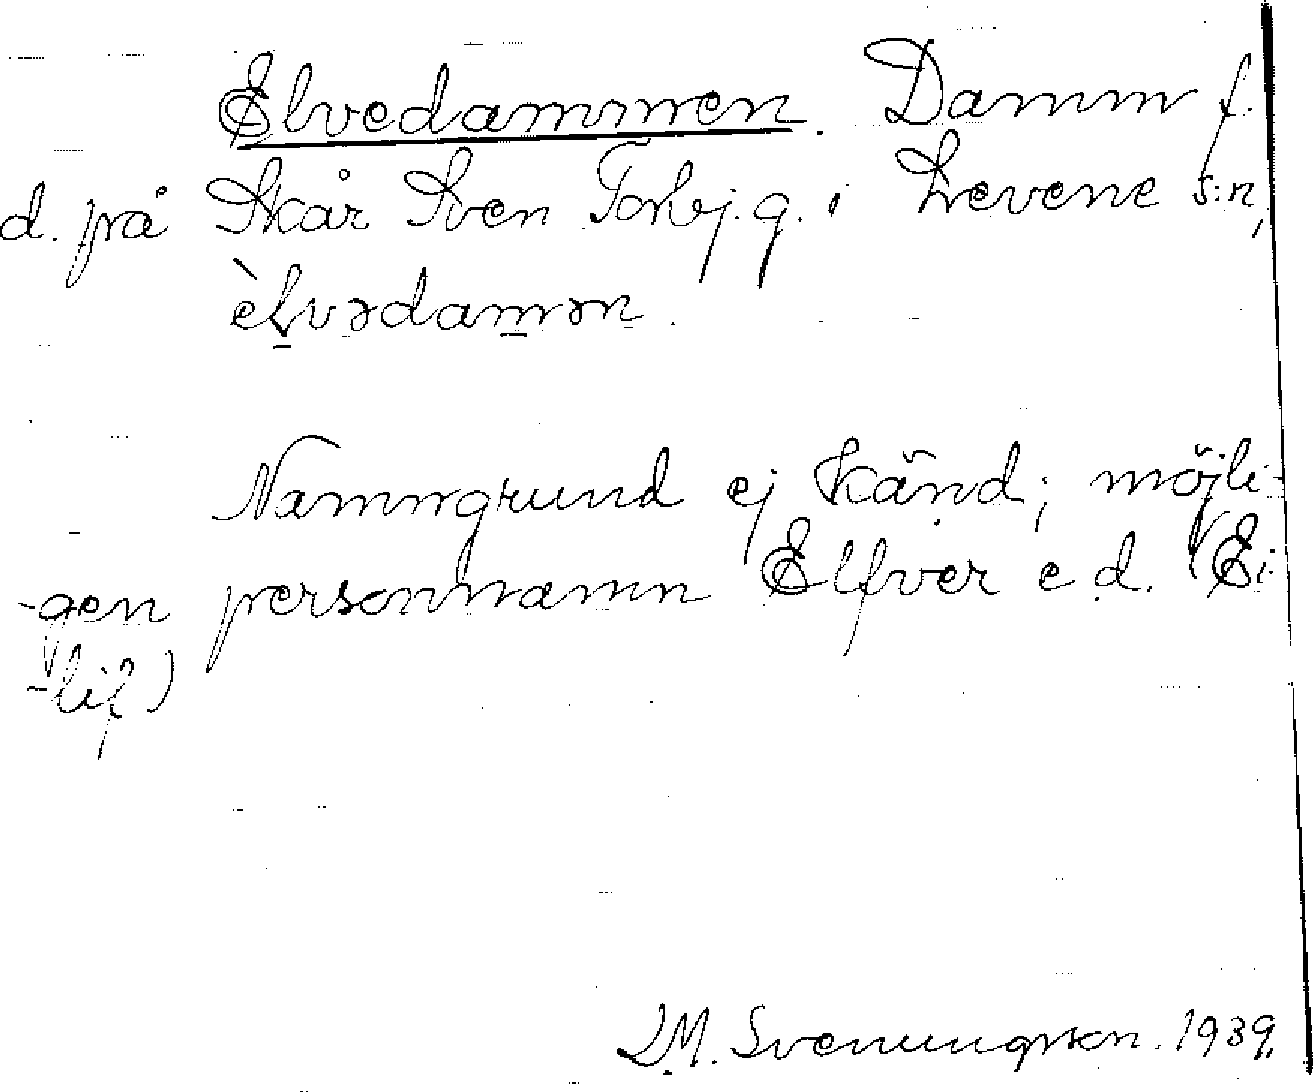 Elvedammen. Damm f.
d. på Skår Sven Torbj. g. i Levene s:n,
èḻvədam̲ən.
Namngrund ej känd; möjli-
-gen personnamn Elfver e d. (Ei-
-lif)
L.M. Svenungsson. 1939.